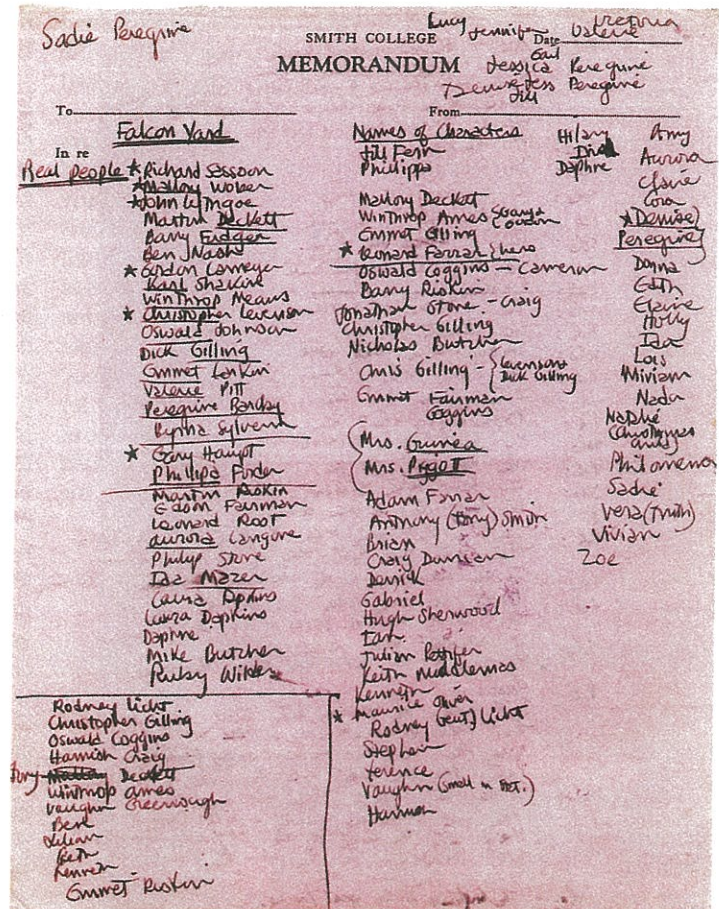 Sadie Peregrine
Lucy Jennifer Victoria
Valerie
SMITH COLLEGE Date
Gail
MEMORANDUM Jessica Peregrine
Denise Jess Peregrine
Jill
To From
Falcon Yard
In re
Real people
* Richard Sassoon
* Mallory Wober
* John
Martin Deckett
Barry Fudger
Ben Nash
* Gordon Lameyer
Karl
Winthrop Means
* Christopher Levenson
Oswald Johnson
Dick Gilling
Emmet Larkin
Valerie Pitt
Peregrine
* Gary Haupt
Philippa Forder
Martin Riskin
Edom Fairman
Leonard Root
Aurora Langore
Philip Stone
Ida Mazer
Laura Dopkins
Laura Dopkins
Daphne
Mike Butcher
Ruby Wilde
Rodney Licht
Christopher Gilling
Oswald Coggins
Hamish Craig
Tony Mallory Deckett
Winthrop Ames
Vaughn Greenough
Bert
Lilian
Keith
Kenneth
Emmet Riskin
Names of Characters
Jill Fern
Phillippa
Mallory Deckett
Winthrop Ames
Emmet Gilling
* Leonard Farrar: hero
Oswald Coggins - Cameron
Barry Riskin
Jonathan Stone - Craig
Christopher Gilling
Nicholas Butcher
Chris Gilling - { Levenson &
Dick Gilling
Emmet Fairman
Coggins
Mrs. Guinea
Mrs. Pigott
Adam Farrar
Anthony (Tony) Smith
Brian
Craig Duncan
Derrick
Gabriel
Hugh Sherwood
Ian
Julian Pettifer
Keith Middlemas
Kenneth
* Maurice
Rodney Licht
Stephen
Terence
Vaughn (small in)
Harmon
Hilary
Daphne
Amy
Aurora
Claire
Cora
* Denise
Peregrine
Donna
Edith
Elaine
Holly
Ida
Lois
Miriam
Nada
Philomena
Sadie
Vera (Truth)
Vivian
Zoe